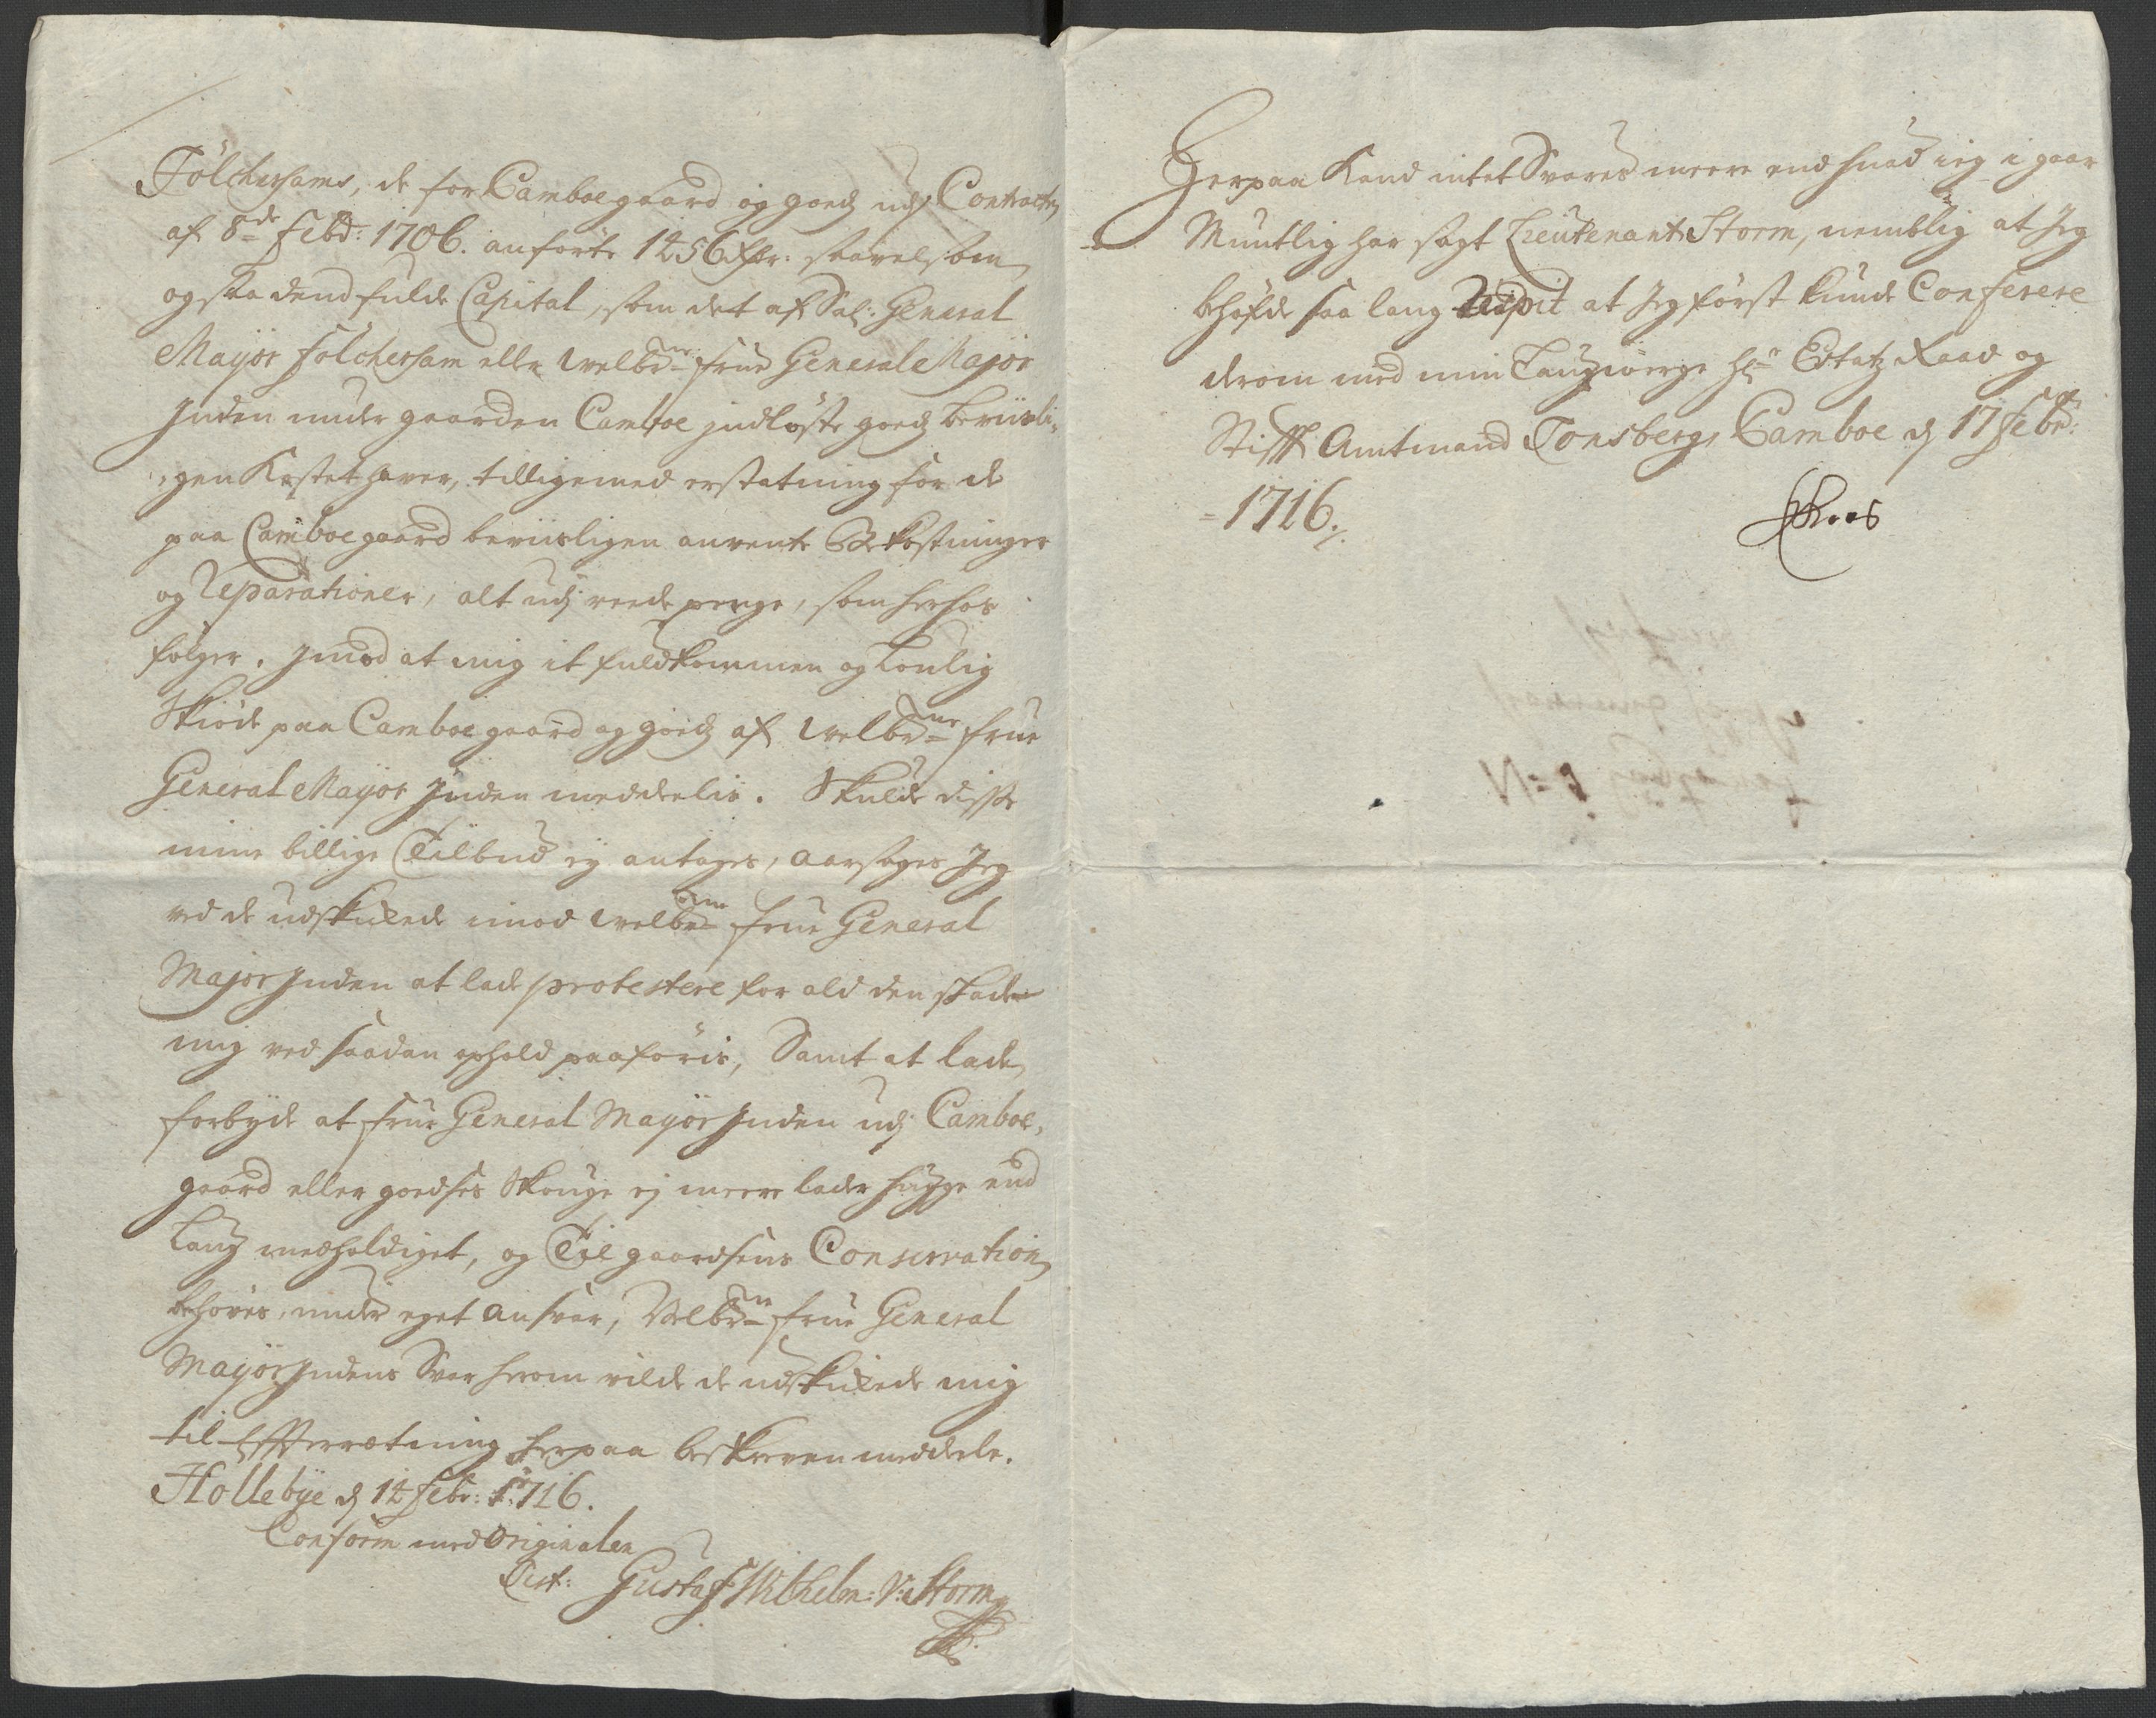 Fölchershams, de for Camboegaard og goedz udj Contracten
af 8de Febr: 1706. anförte 1256 Rdlr: saavelsom
ogsaa dend fulde Capital, som det af Sal: General
Mayor Folchersham eller Welbrne frue General Major
Inden under gaarden Camboe indlöste goedz beviisli-
-gen Kostet haver, tilligemed erstatning for de
paa Camboegaard beviisligen anvente Bekostninger
og Reparationer, alt udj reede penge, som herhos
følger. Imod at mig it fuldkommen og Loulig
Skiøde paa Camboegaard og goedz af Welbrne frue
General Mayor Inden meddeelis. Skulde disse
mine billige Tilbud ey antages, aarsages Jeg
ved de udskikede imod Welbrne frue General
Major Inden at lade protestere for ald den skade
mig ved saadan ophold paaføris, Samt at lade
forbyde at frue General Mayor Inden udj Camboe,
gaard eller goedses Skouge ej meere lader hugge end
Laug medholdiget, og Til gaardsens Conservation
behøves, under eget ansvar, Velbrn frue General
Mayor Indens Svar herom vilde de udskikede mig
til Effterretning herpaa beskreven meddele.
Hollebye d 14 Febr: 1716.
Conform med Originalen
Test: Gustaf Wilhelm: V: Storm
Herpaa Kand intet Svares meere end hvad ieg i gaar
Mundtlig har sagt Lieutenant Storm, nemblig at Jeg
behøfde saa lang Respit at Jeg først kunde Conferere
derom med min Laugværge Hr Etatz Raad og
Stiffts Amtmand Tonsberg, Camboe d 17 Febr:
=1716.